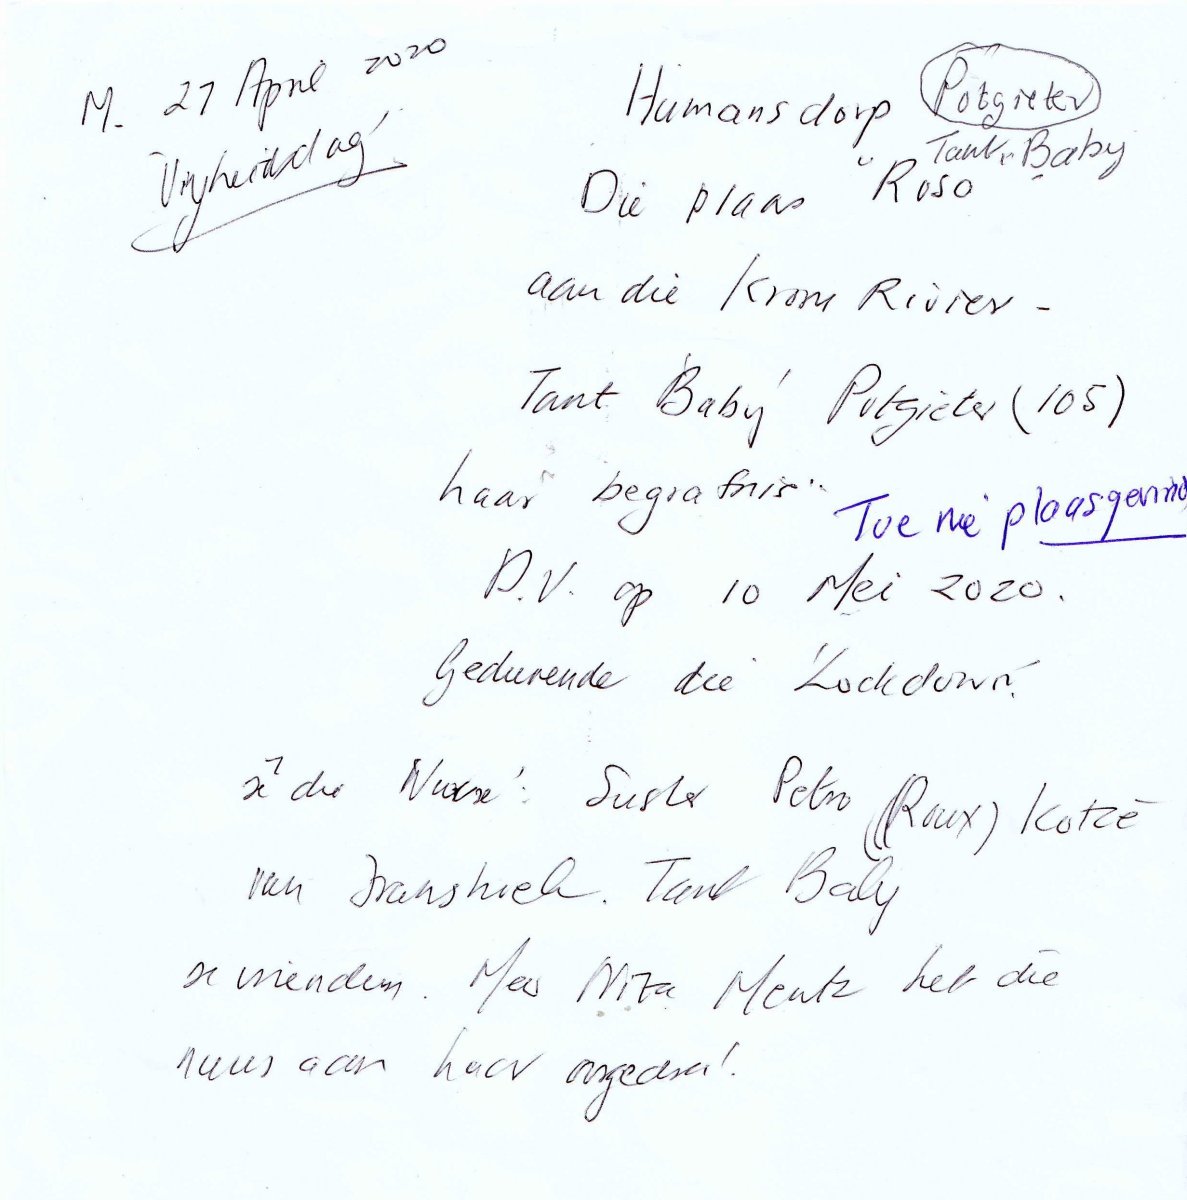 M. 27 April 2020
Vryheidsdag
Humansdorp Potgieter
Tant "Baby
Die plaas "Roso
aan die Krom Rivier -
Tant 'Baby' Potgieter (105)
haar begrafnis"
Toe nie plaasgevind
D.V. op 10 Mei 2020.
Gedurende die 'Lockdown'.
sê die Nurse': Suster Petro (Roux) Kotzé
van Tant Baby
se vriendin. Mev Nita Mentz het die
nuus aan haar oorgedra!.